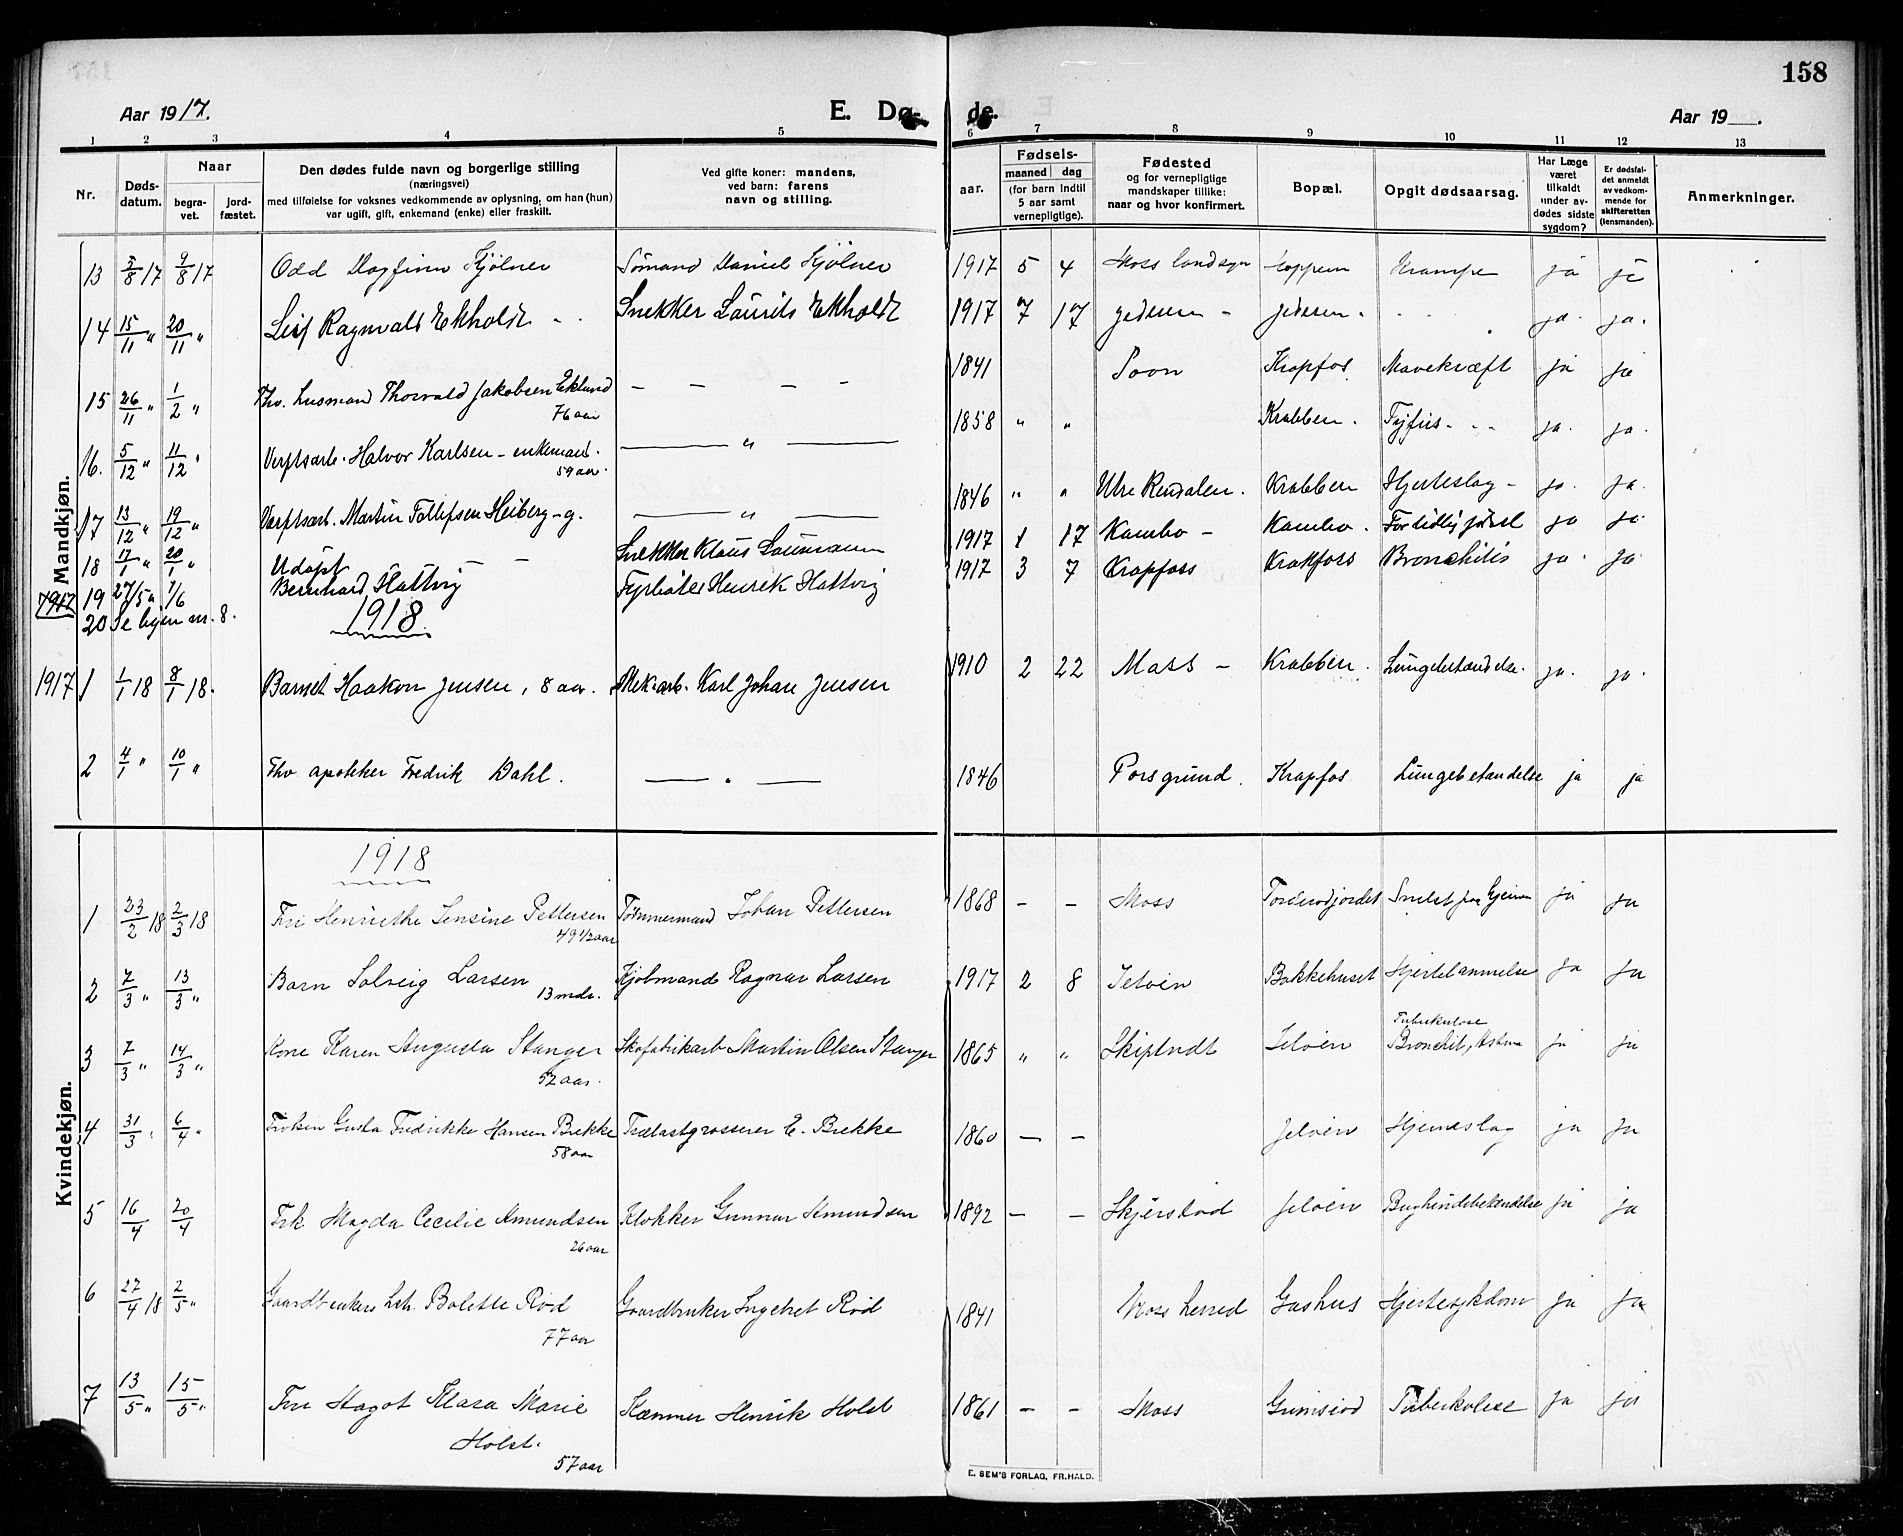 158
Aar 1917.
E. Dø- de.
Aar 19 .
1 2 3 4 5 6 7 8 9 10 11 12 13
Nr.
Døds-datum.
Naar
begra-vet.
jord-fæstet.
Den dødes fulde navn og borgerlige stilling
(næringsvei)
med tilføielse for voksnes vedkommende av oplysning, om han (hun)
var ugift, gift, enkemand (enke) eller fraskilt.
Ved gifte koner: mandens,
ved barn: farens
navn og stilling.
aar.
Fødsels-
maaned dag
(for barn indtil
5 aar samt
vernepligtige).
Fødested
og for vernepligtige
mandskaper tillike:
naar og hvor konfirmert.
Bopæl.
Opgit dødsaarsag.
Har Læge
været
tilkaldt
under av-
dødes sidste
sygdom?
Er dødsfal-
det anmeldt
av vedkom-
mende for
skifteretten
(lensmanden).
Anmerkninger.
Mandkjøn.
13 5/8 17 9/8 17 Odd Dagfinn Kjølner Sømand Daniel Kjølner 1917 5 4 Moss landsogn Krampe ja ja
14 15/11 " 20/11 " Leif Ragnvald Ekholdt - - Snekker Laurits Ekholdt 1917 7 17 Jederen - Jederen. ja. ja.
15 26/11 " 1/2 " Fhv. Thorvald Jakobsen Eklund - - - - 1841 Krapfos Mavekræft ja ja
76 aar
16. 5/12 " 11/12 " Verftsarb. Halvor Karlsen - enkemand. — " — 1858 " " Krabben. Tyfus - - - ja. ja.
59 aar.
17 13/12 " 19/12 " Verftsarb. Martin Tollefsen Heiberg - g. — " — 1846 " " Utre Rendalen. Krabben Hjerteslag - ja. ja.
18 17/1 " 20/1 " Udøpt - - Snekker Klaus 1917 1 17 Kambo - Kambo. Fortidlig fødsel ja ja
19 27/5 " 1/6 Bernhard Hattvig Fyrbøter Henrik Hattvig 1917 3 7 Krapfoss Krapfoss Bronchitis ja. ja.
1917
20 Se nr. 8.
1918.
1917 1 1/1 18 8/1 18. Barnet Haakon Jensen, 8 aar. Mek. arb. Karl Johan Jensen 1910 2 22 Moss - Krabben. Lungebetændelse. ja. ja.
2 4/1 " 10/1 " Fhv. apoteker Fredrik Dahl. — " — 1846 Porsgrund. Krapfos Lungebetændelse ja ja
Kvindekjøn.
1918
1 23/2 18 2/3 18 Fru Henriette Jensine Pettersen Tømmermand Johan Pettersen 1868 - - Moss ja ja
49 1/2 aar
2 7/3 " 13/3 " Barn Solveig Larsen Kjøbmand Ragnar Larsen 1917 2 8 Jeløen Bakkehuset Hjertelammelse ja ja
13 mdr.
3 7/3 " 14/3 " Kone Karen Augusta Stanger Skofabrikarb Martin Olsen Stanger 1865 " " Skiptvdt Jeløen Tuberkulose Bronchit, Astma ja ja
52 aar.
4 31/3 " 6/4 " Frøken Gusta Fredrikke Hansen Brekke Trælastgrosserer E. Brekke 1860 - - Jeløen ja ja
58 aar
5 16/4 20/4 Frk Magda Cecilie Amundsen Klokker Gunnar Amundsen 1892 - - Skjerstad Jeløen Bughindebetændelse ja ja
26 aar
6 27/4 18 2/5 " Gaardbrukers Bolette Rød Gaardbruker Ingebret Rød 1841 Moss herred Gashus Hjertesykdom ja ja
77 aar
7 13/5 " 15/5 " Fru Hagot Klara Marie Kæmner Henrik Holst 1861 - - Moss Grimsrød Tuberkulose ja ja
Holst.
57 aar
E. SEM'S FORLAG, FR.HALD.